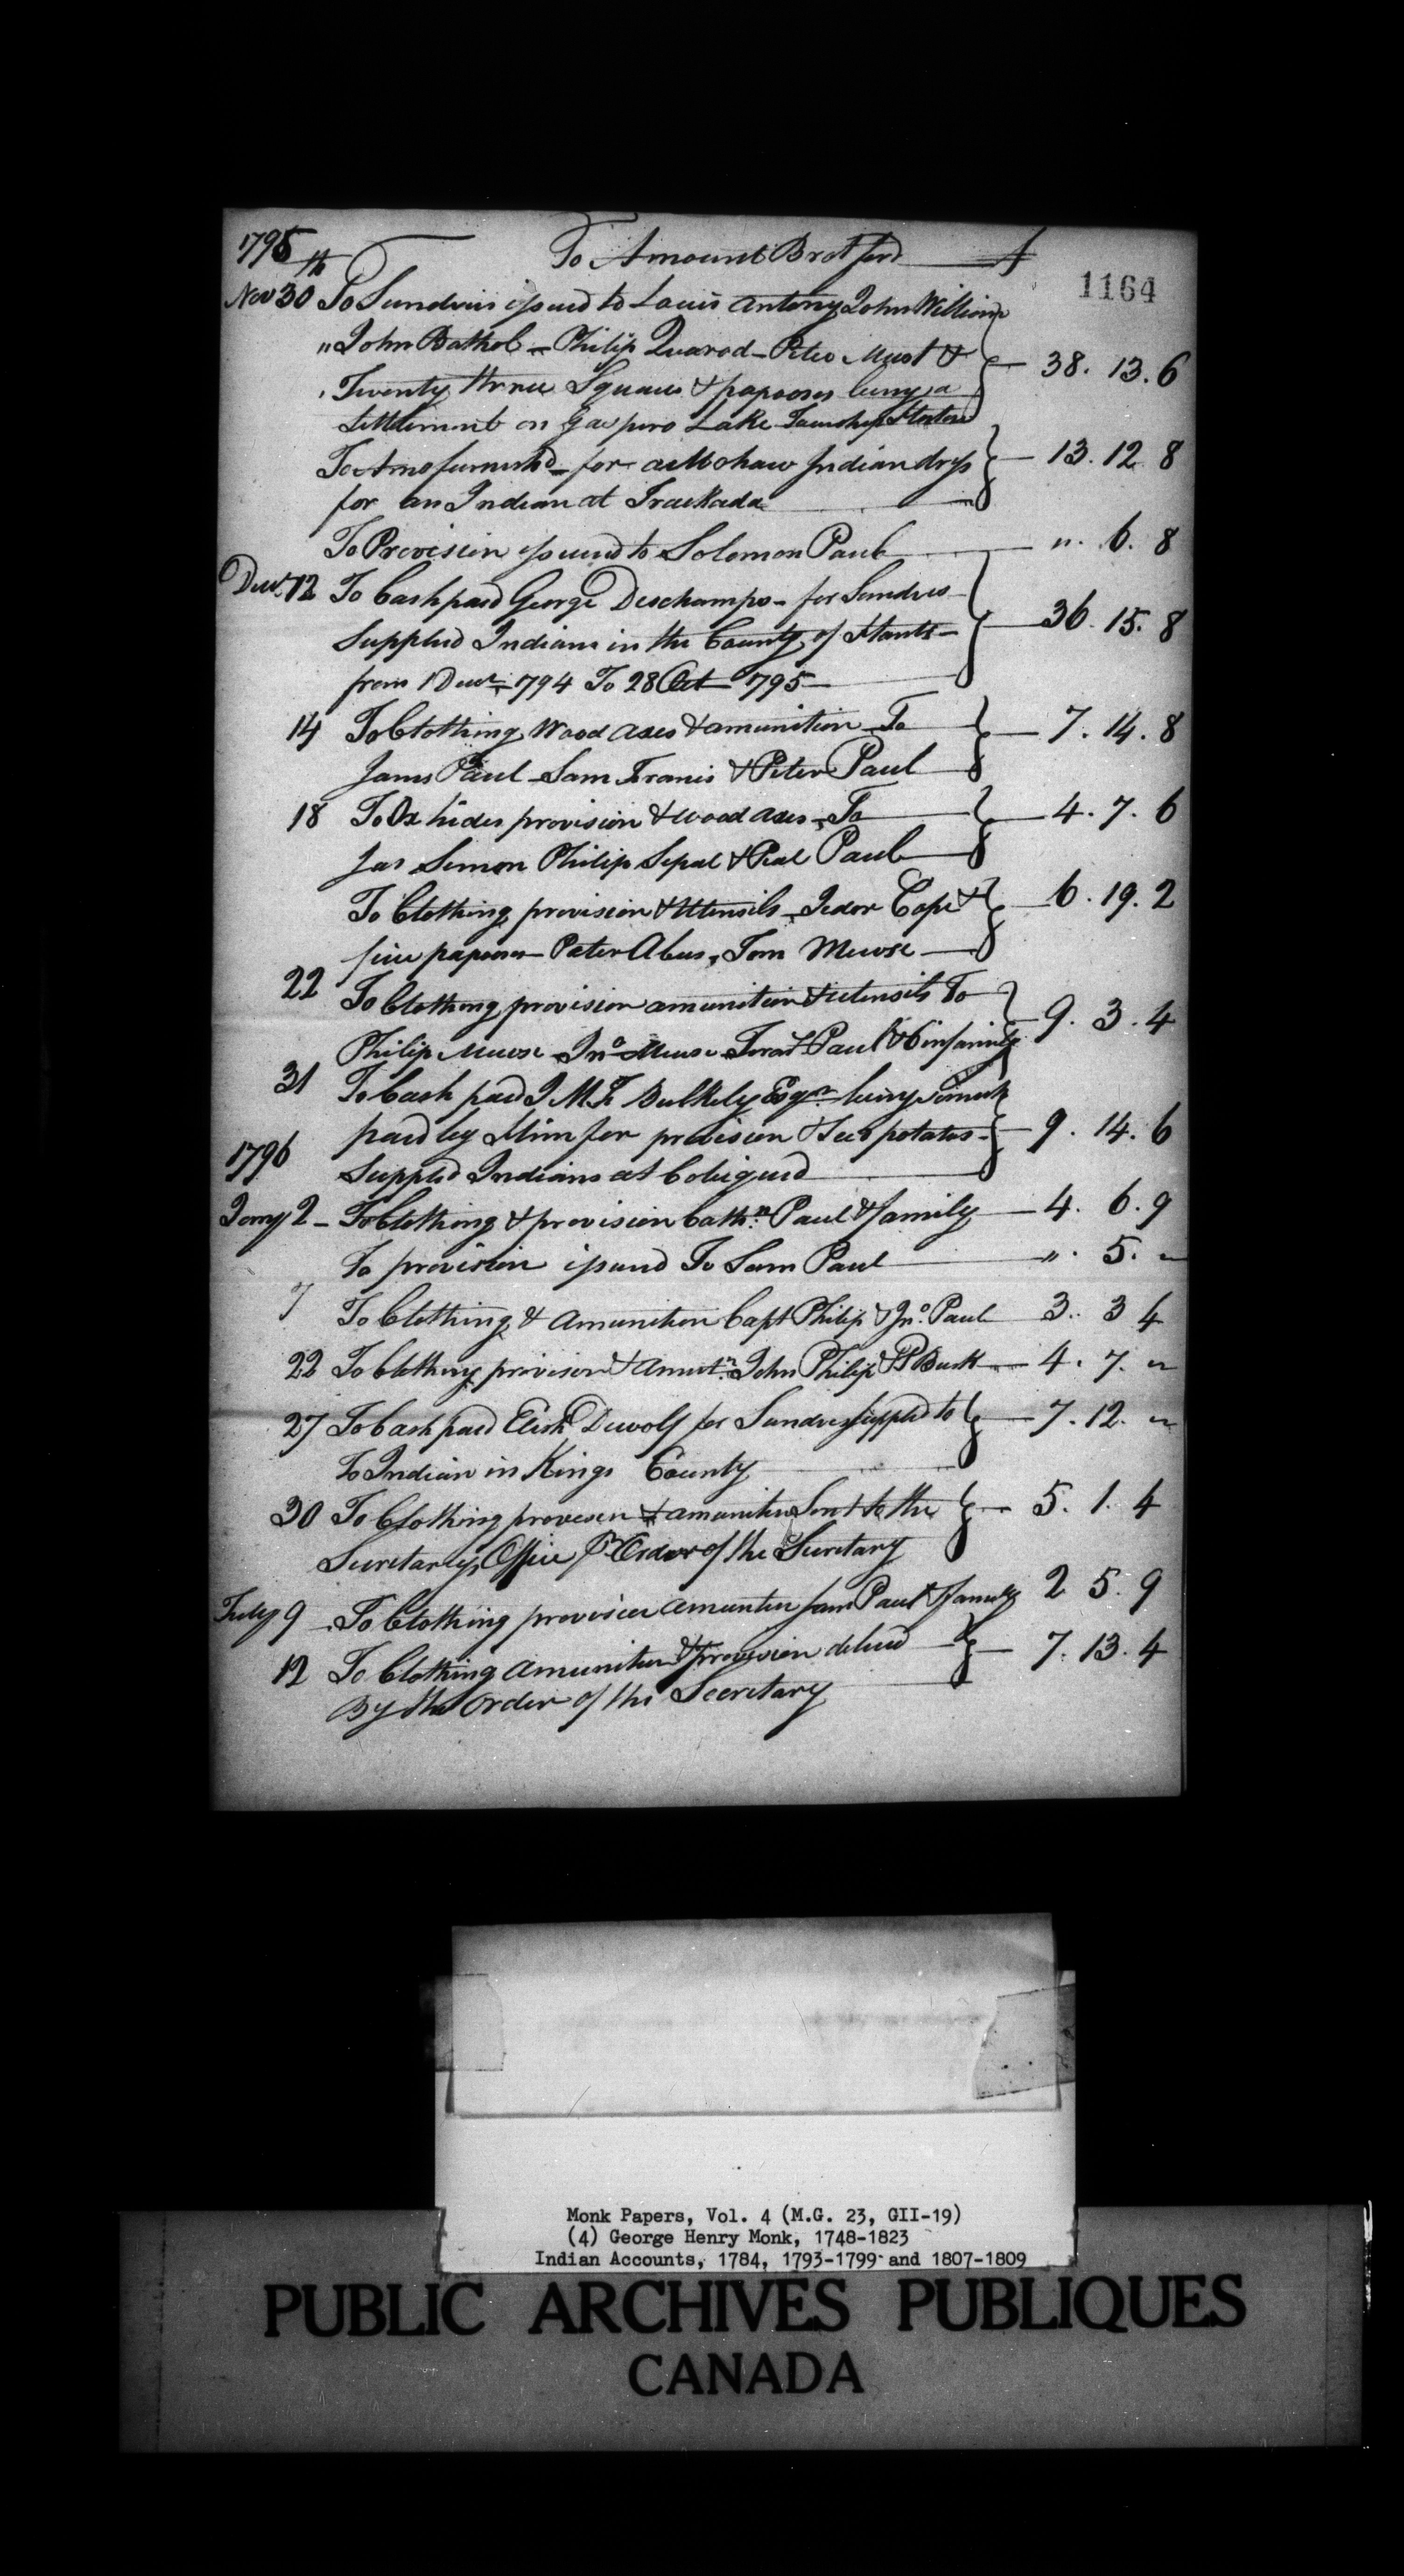 1795 To Amount Brot ford
1164
Nov 30th To Sundries issued to Louis Antony John William
" John Bathol - Philip Quarod - Peter Must &
Twenty three Squaws & papooses being a
Settlement on Gaspero Lake Township Horton 38. 13. 6
To Amo furnishd for a Mohaw Indian dress
for an Indian at Trackada 13. 12 8
To Provision issued to Solomon Paul ". 6. 8
Decr 12 To Cash paid George Deschamps - for Sundres
Supplied Indians in the County of Hants -
from 1 Decr 1794 To 28 Oct 1795 - 36. 15. 8
14 To Clothing Wood axes & amunition To
James Paul Sam Francis & Peter Paul 7. 14. 8
18 To Ox hides provision & wood axes - To
Jas Simon Philip Sepal & Peal Paul 4. 7. 6
To Clothing provision & Utensils Cope &
five papooses - Peter Abus, Tom Meuse 6. 19. 2
22 To Clothing provision amunition & utensils To
Philip Meuse Jno Meuse Paul & 6 in family 9. 3. 4
31 To Cash paid J M F Bulkely Esqr being
paid by Him for provision & Seed potatos -
Suppled Indians at Cobiquid 9. 14. 6
1796
Jany 2 - To Clothing & provision Cathn Paul & family 4. 6. 9
To provision issued To Sam Paul ". 5. "
7 To Clothing & Amunition Capt Philip & Jno Paul 3. 3 4
22 To Clothing provision & Amutn John Philip & P Busk 4. 7. "
27 To Cash paid Elish Dewolf for Sundres supplid to
To Indian in Kings County 7. 12. "
30 To Clothing provision & amunition Sent to the
Secretarys Office Pr Order of the Secretary 5. 1. 4
9 To Clothing provision amunition Sam Paul & family 2 5. 9
12 To Clothing Amunition & provision delivd
By the order of the Secretary 7. 13. 4
Monk Papers, Vol. 4 (M.G. 23, GII-19)
(4) George Henry Monk, 1748-1823
Indian Accounts, 1784, 1793-1799 and 1807-1809
PUBLIC ARCHIVES PUBLIQUES
CANADA